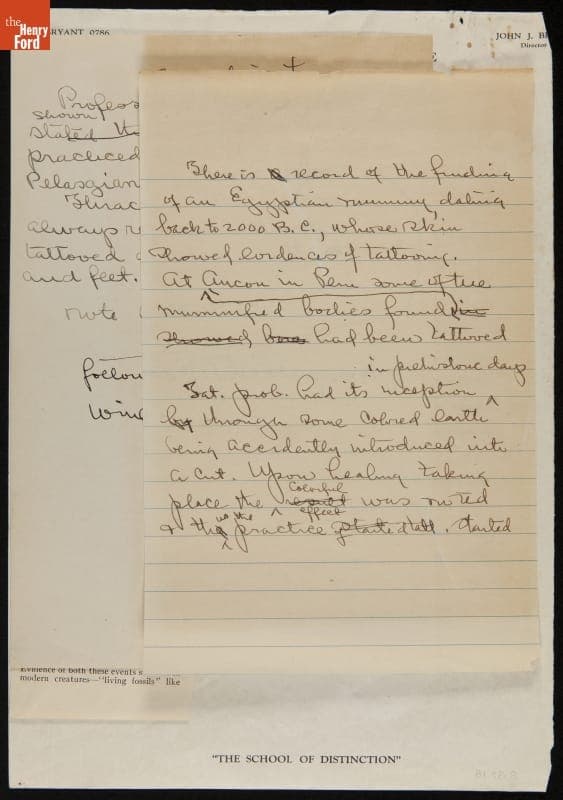 the
Henry
Ford
RYANT 0786
JOHN J. B
Director
Profess
shown
stated th
practiced
Pelasgian
Thrac
always r
tattooed
and feet.
note
follow
Wind
There is record of the finding
of an Egyptian mummy dating
back to 2000 B.C., whose skin
showed evidences of tattooing.
At Ancon in Peru some of the
mummified bodies found in
showed had been tattooed
in prehistoric days
Tat. prob. had its inception
by through some colored earth
being accidently introduced into
a cut. Upon healing taking
colorful
place the result was noted
effect
& the practice started tatt. started
Evidence of both these events s
modern creatures—"living fossils" like
"THE SCHOOL OF DISTINCTION"